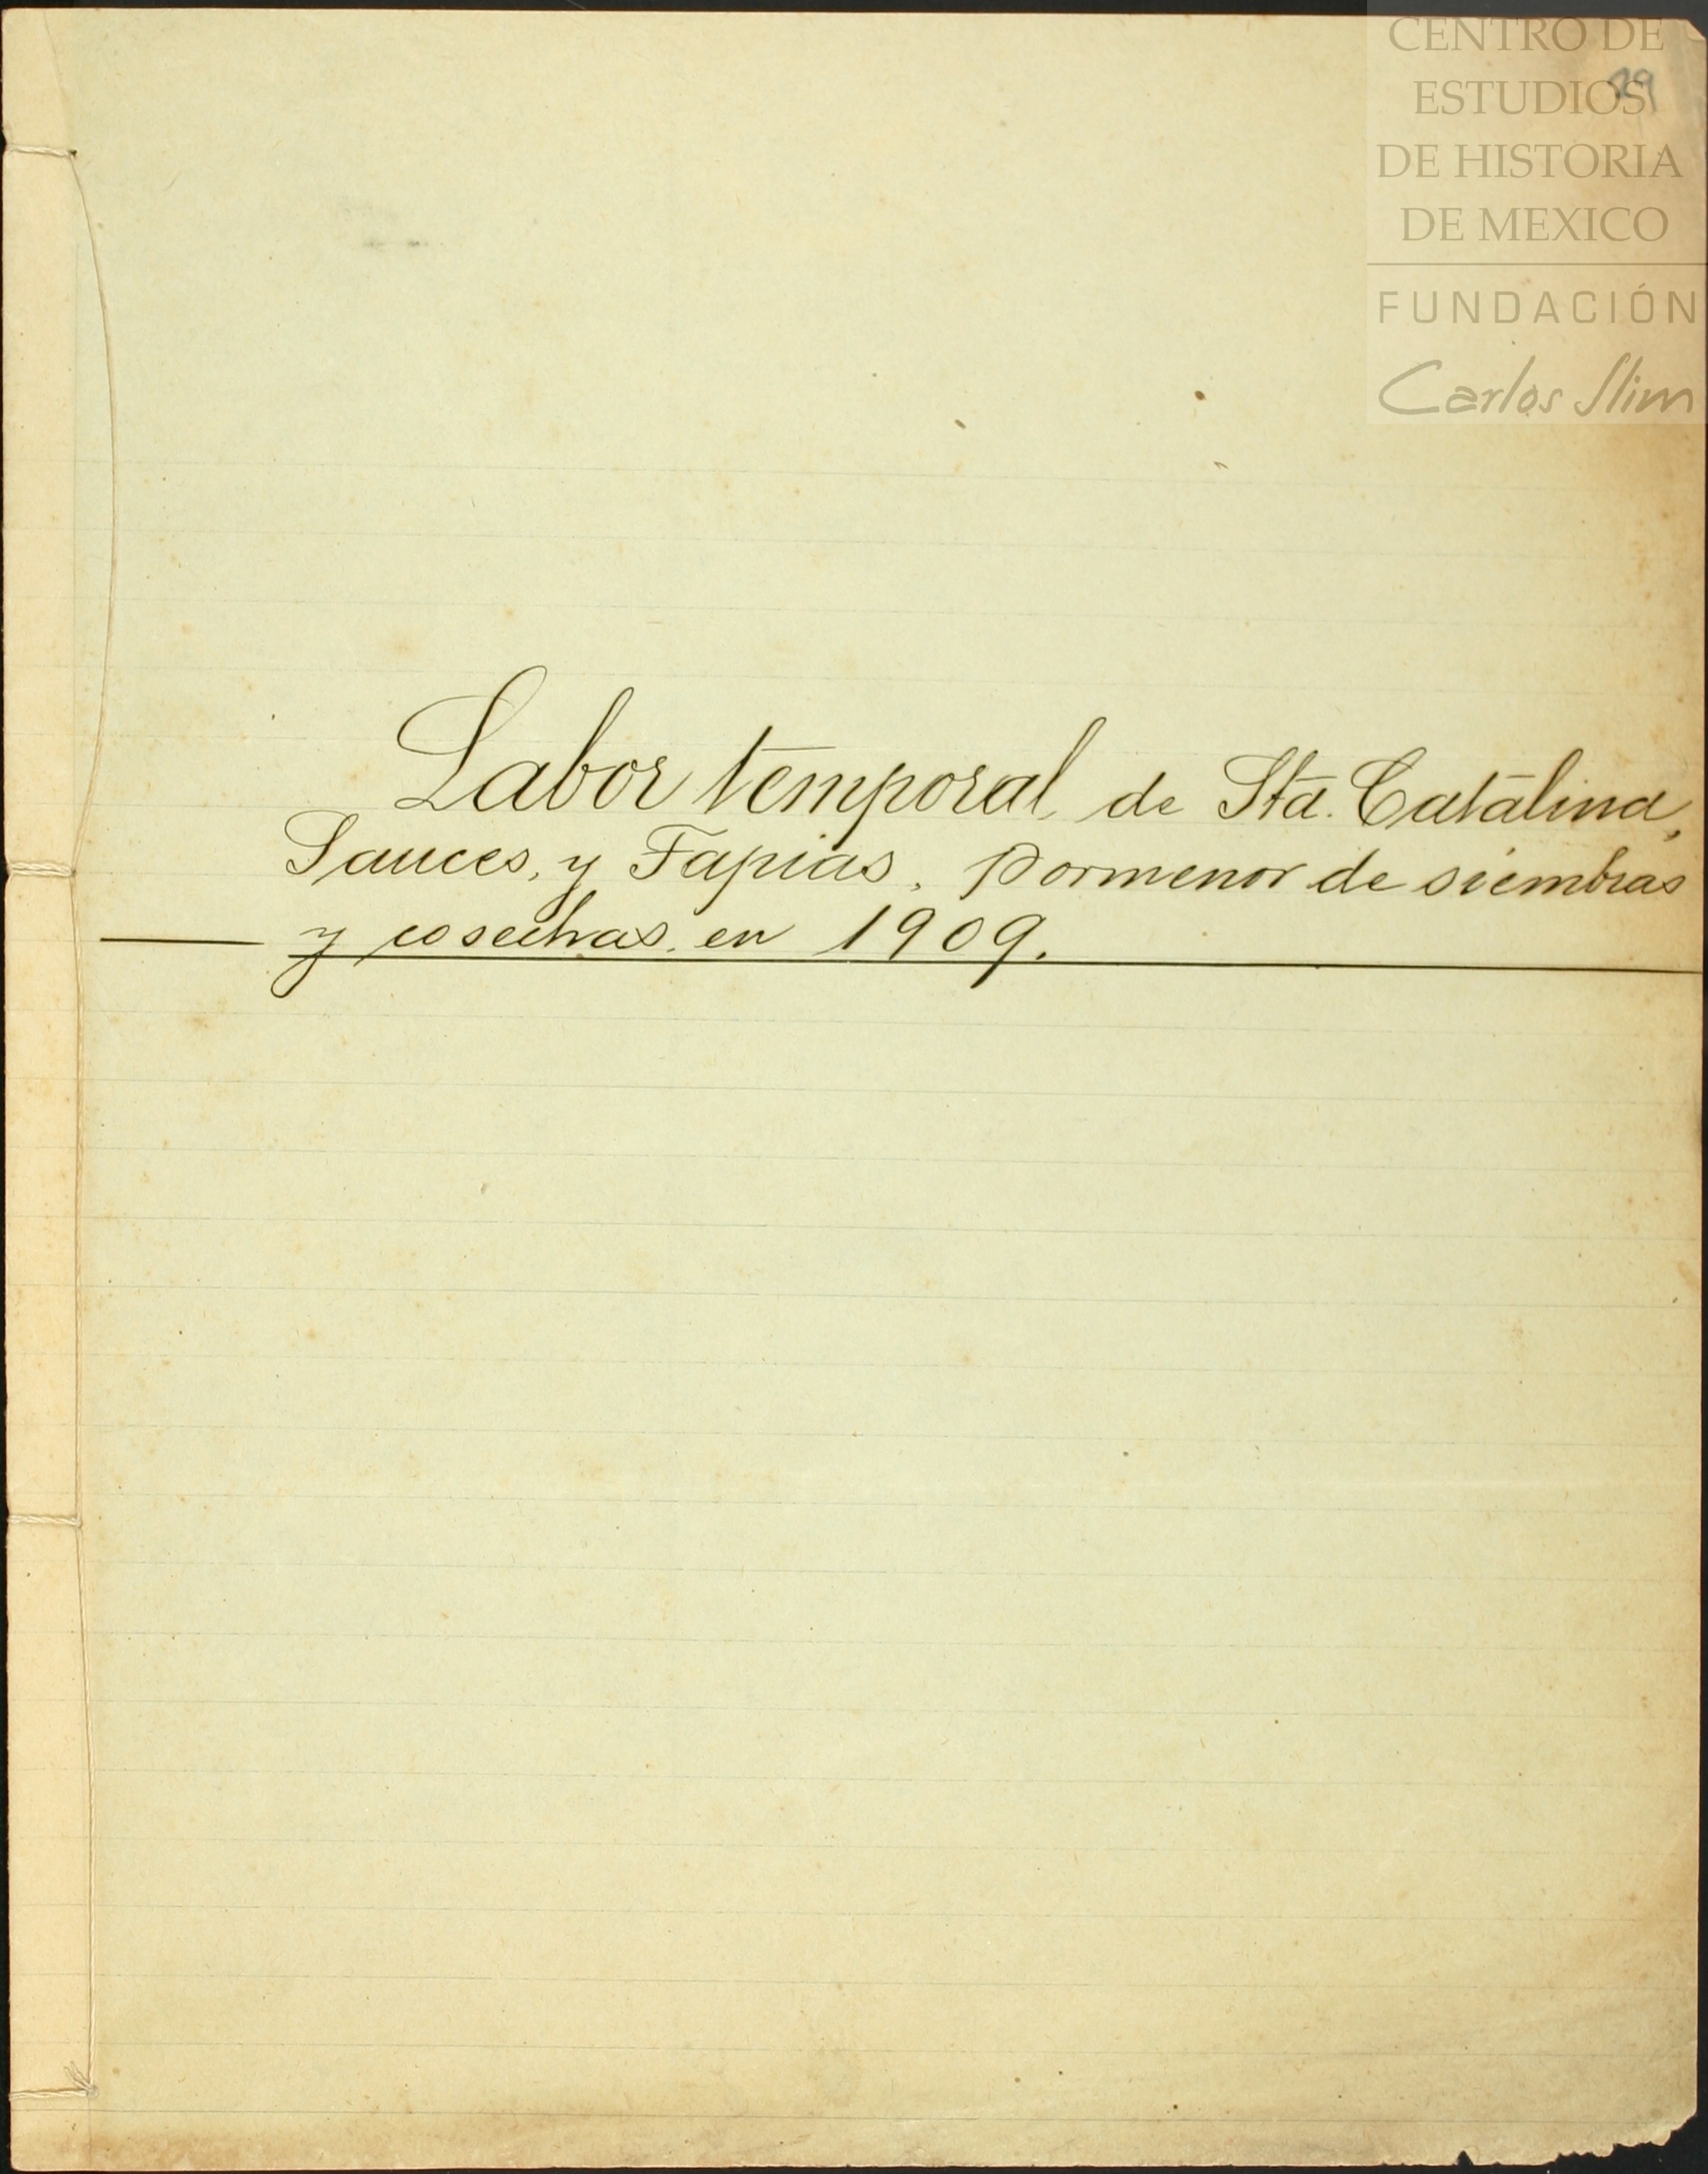 CENTRO DE
ESTUDIOS
DE HISTORIA
DE MEXICO
FUNDACIÓN
Carlos Slim
Labor temporal, de Sta. Catalina,
Sauces, y Tapias. Pormenor de siembras
y cosechas. en 1909.